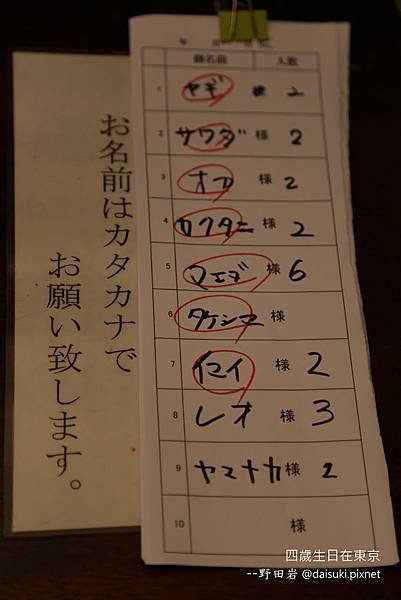 お名前はカタカナで
お願い致します。
年 月 日
御名前 人数
1 ヤギ 様 2
2 サワダ 様 2
3 オカ 様 2
4 カクタニ 様 2
5 マエダ 様 6
6 タケシマ 様
7 イマイ 様 2
8 レオ 様 3
9 ヤマナカ 様 2
10 様
四歲生日在東京
--野田岩 @daisuki.pixnet